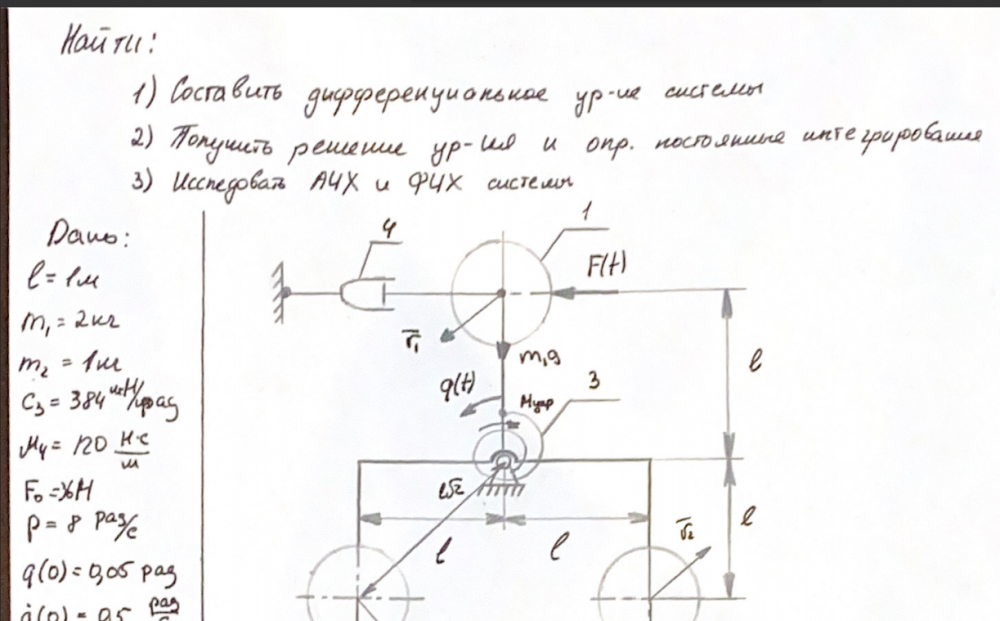 Найти:
1) Составить дифференциальное ур-ие системы
2) Получить решение ур-ия и опр. постоянные интегрирования
3) Исследовать АЧХ и ФЧХ системы
Дано:
l = 1м
m₁ = 2кг
m₂ = 1кг
C₃ = 384 Н/рад
μ₄ = 120 Н·с/м
F₀ = Н
p = 8 рад/с
q(0) = 0,05 рад
q̇(0) = 0,5 рад
4
1
F(t)
r̄₁
m₁g
l
q(t)
Mупр
3
l√2
l
l
r̄₂
l